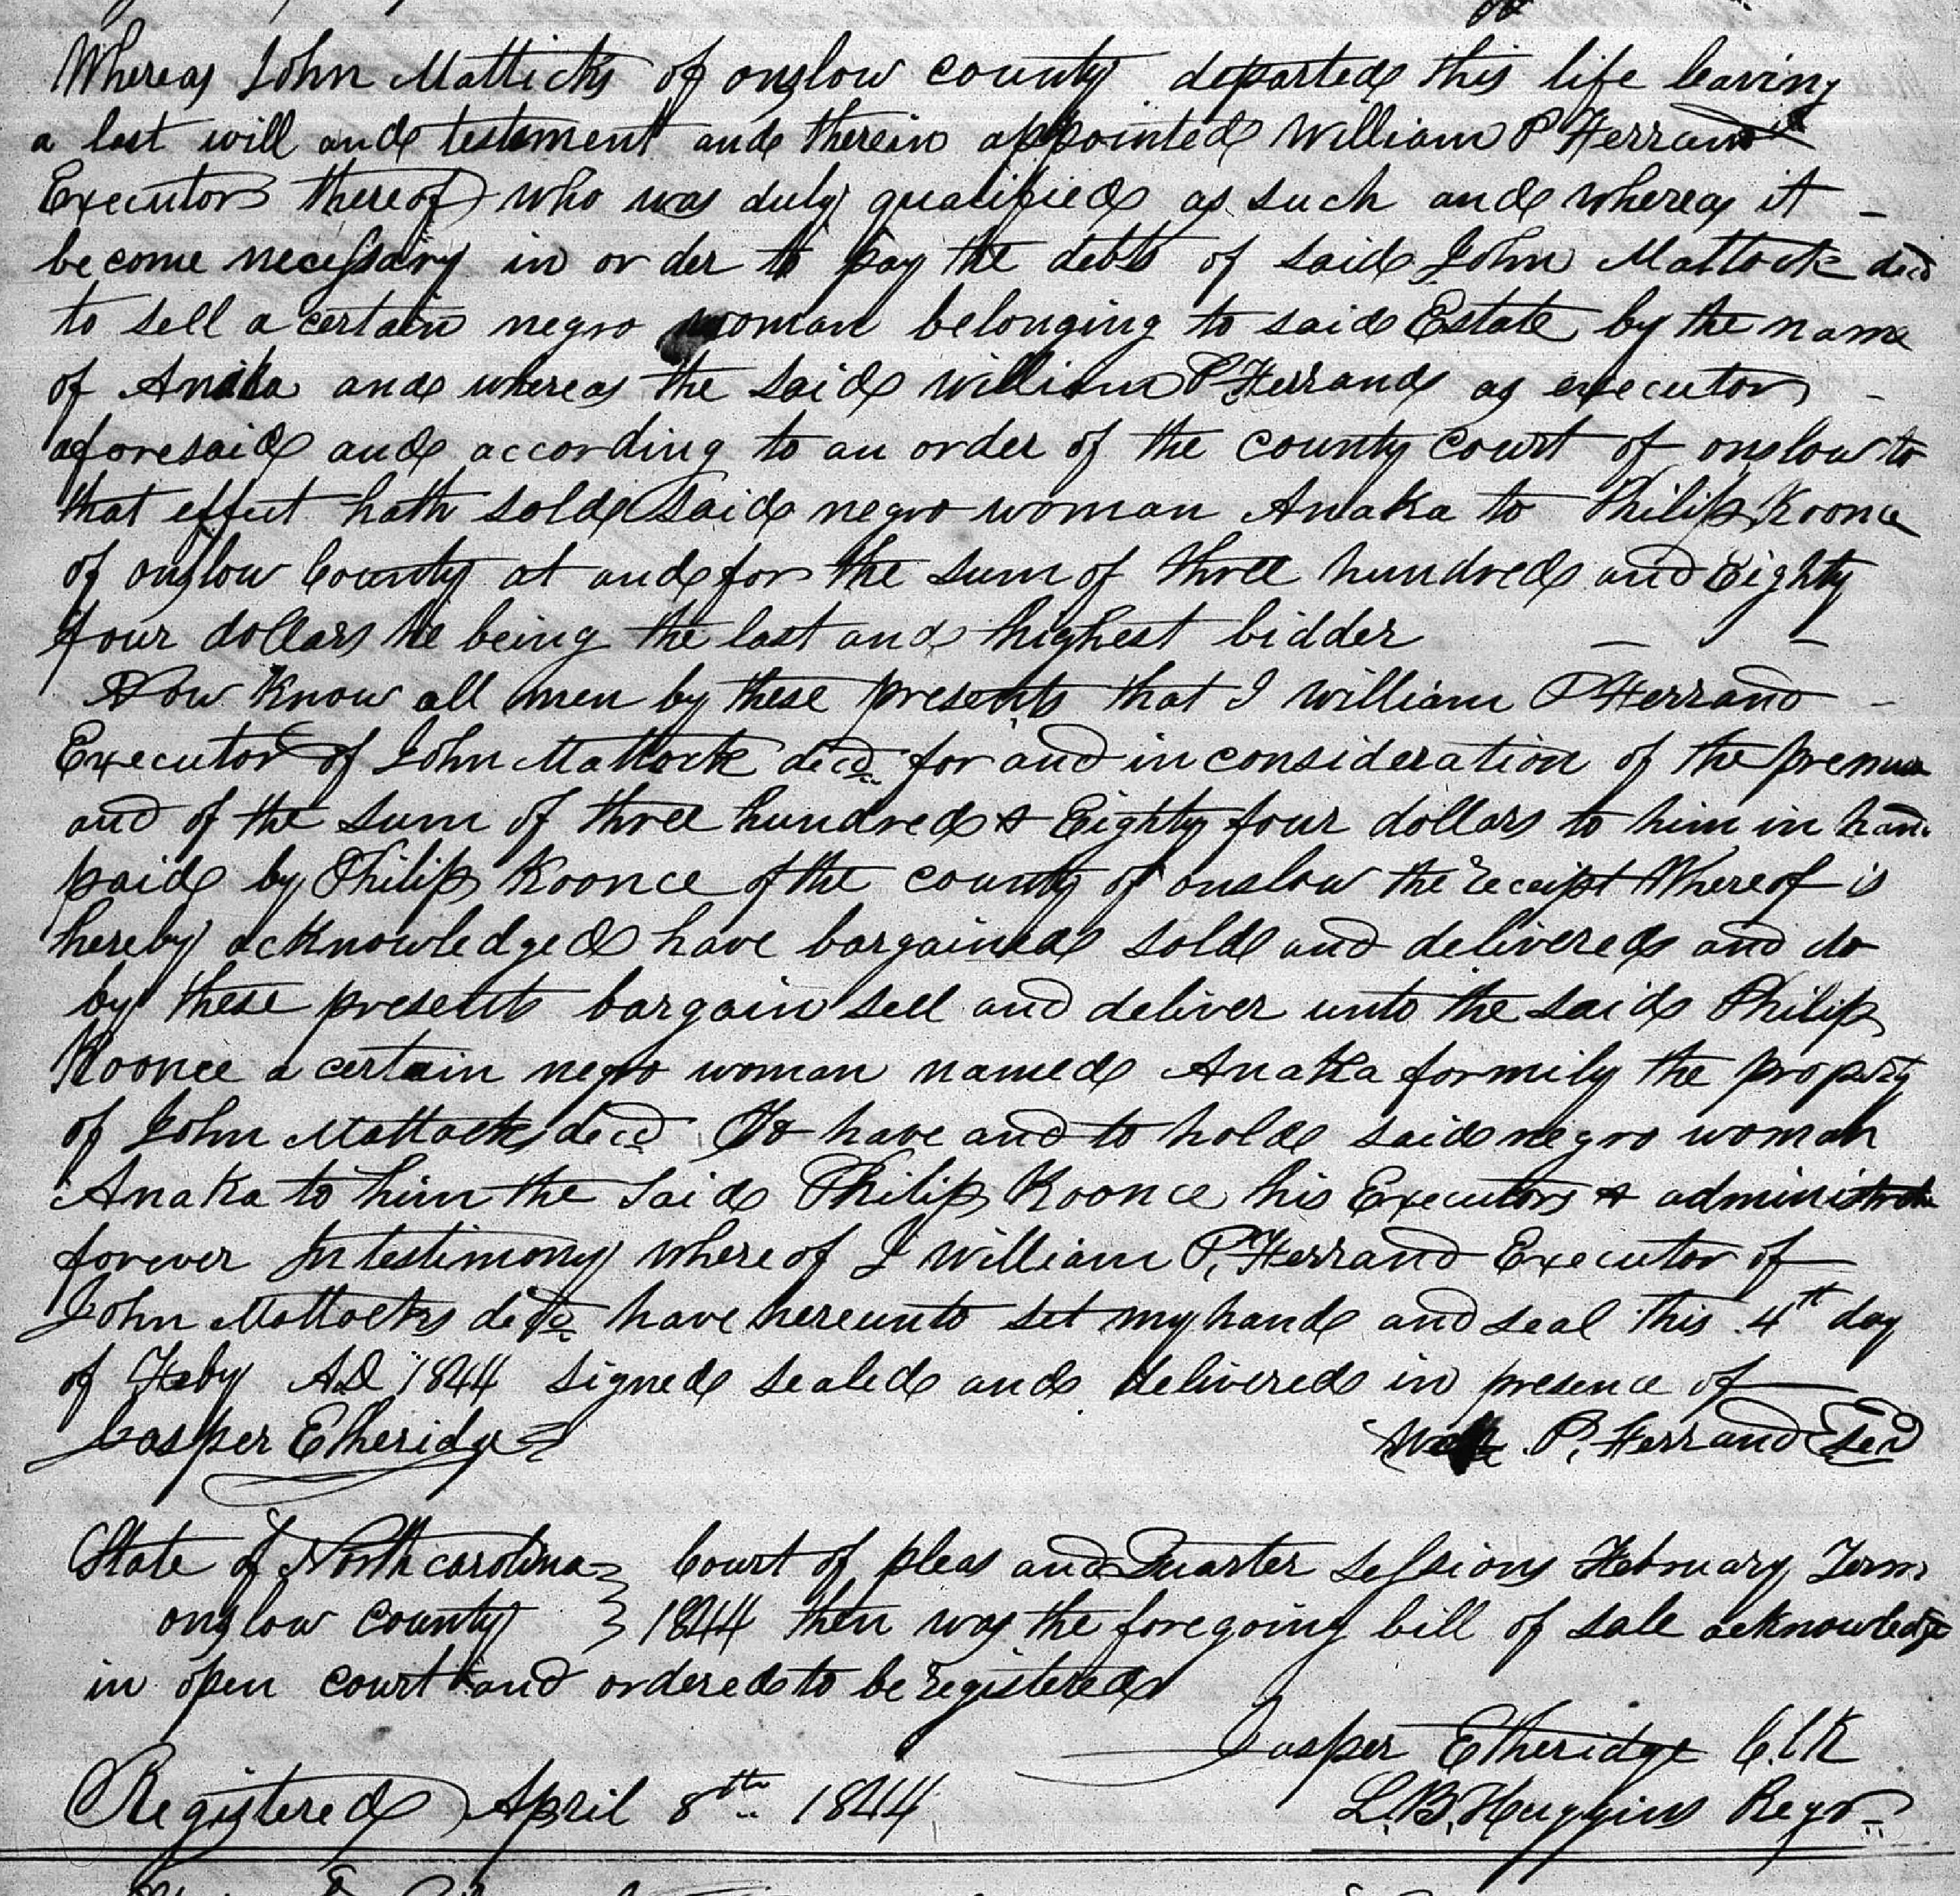 Whereas John Matticks of onslow county departed this life leaving
a last will and testament and therein appointed William P Ferrand
Executor thereof who was duly qualified as such and whereas it –
become necessary in order to pay the debts of said John Mattock decd
to sell a certain negro woman belonging to said Estate by the name
of Anaka and whereas the said William P Ferrand as executor –
aforesaid and according to an order of the county court of onslow to
that effect hath sold said negro woman Anaka to Philip Koonce
of onslow County at and for the sum of three hundred and Eighty
four dollars he being the last and highest bidder – –
Now Know all men by these presents that I william P Ferrand –
Executor of John Mattock decd for and in consideration of the
and of the sum of three hundred & Eighty four dollars to him in hand
paid by Philip Koonce of the county of onslow the receipt Whereof is
hereby acknowledged have bargained sold and delivered and do
by these presents bargain sell and deliver unto the said Philip
Koonce a certain negro woman named Anaka formily the property
of John Mattock decd To have and to hold said negro woman
Anaka to him the said Philip Koonce his Executors &
forever In testimony where of I William P. Ferrand Executor of
John Mattocks decd have hereunto set my hand and seal this 4th day
of Feby AD 1844 signed sealed and delivered in presence of
Jasper Etheridge P. Ferrand
State of North carolina } Court of pleas and Quarter Sessions February Term
onslow county } 1844 then was the foregoing bill of sale acknowledge
in open court and ordered to be registered
Jasper Etheridge C.lK
Registered April 8th 1844 L.B. Huggins Regr